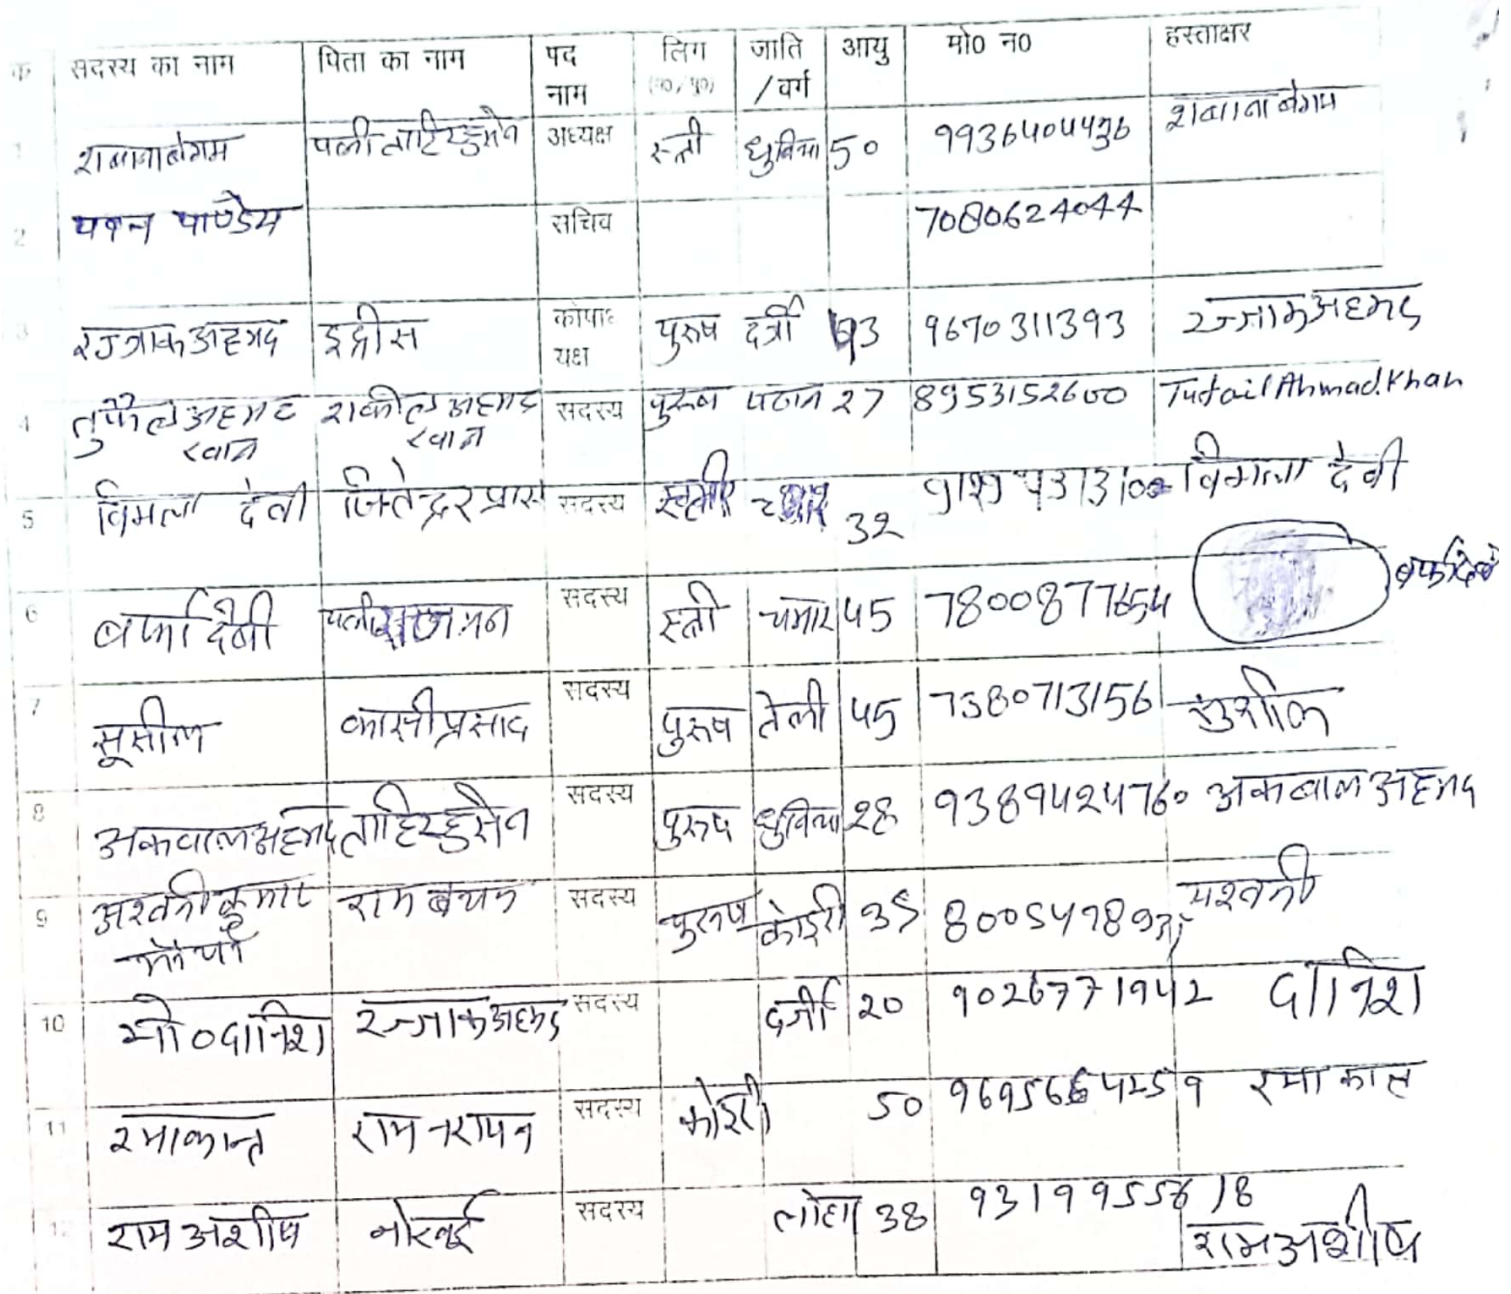 क सदस्य का नाम पिता का नाम पद नाम लिंग जाति / वर्ग आयु मो० न० हस्ताक्षर
1 शबानाबेगम पत्नी ताहिरहुसेन अध्यक्ष स्त्री धुनिया 50 9936404436 शबाना बेगम
2 पवन पाण्डेय सचिव 7080624044
3 रज्जाक अहमद इद्रीस कोषाध्यक्ष पुरुष दर्जी 9670311393 रज्जाक अहमद
4 तुफैल अहमद खान शकील अहमद खान सदस्य पुरुष पठान 27 8953152600 Tufail Ahmad.Khan
5 विमला देवी सदस्य 32 विमला देवी
6 बर्फादेवी पत्नी सदस्य स्त्री चमार 45 7800877654
7 सूसील काशीप्रसाद सदस्य पुरुष तेली 45 7380713156 सुशील
8 अकबालअहमद ताहिरहुसेन सदस्य पुरुष धुनिया 28 9389424760 अकबाल अहमद
9 अश्वनी कुमार मौर्या राम बचन सदस्य पुरुष कोइरी 35 अश्वनी
10 मो०दानिश रज्जाक अहमद सदस्य दर्जी 20 9026771942 दानिश
11 रमाकान्त राम नरायन सदस्य कोइरी 50 रमा कान्त
12 राम अशीष सदस्य लोहा 38 राम अशीष